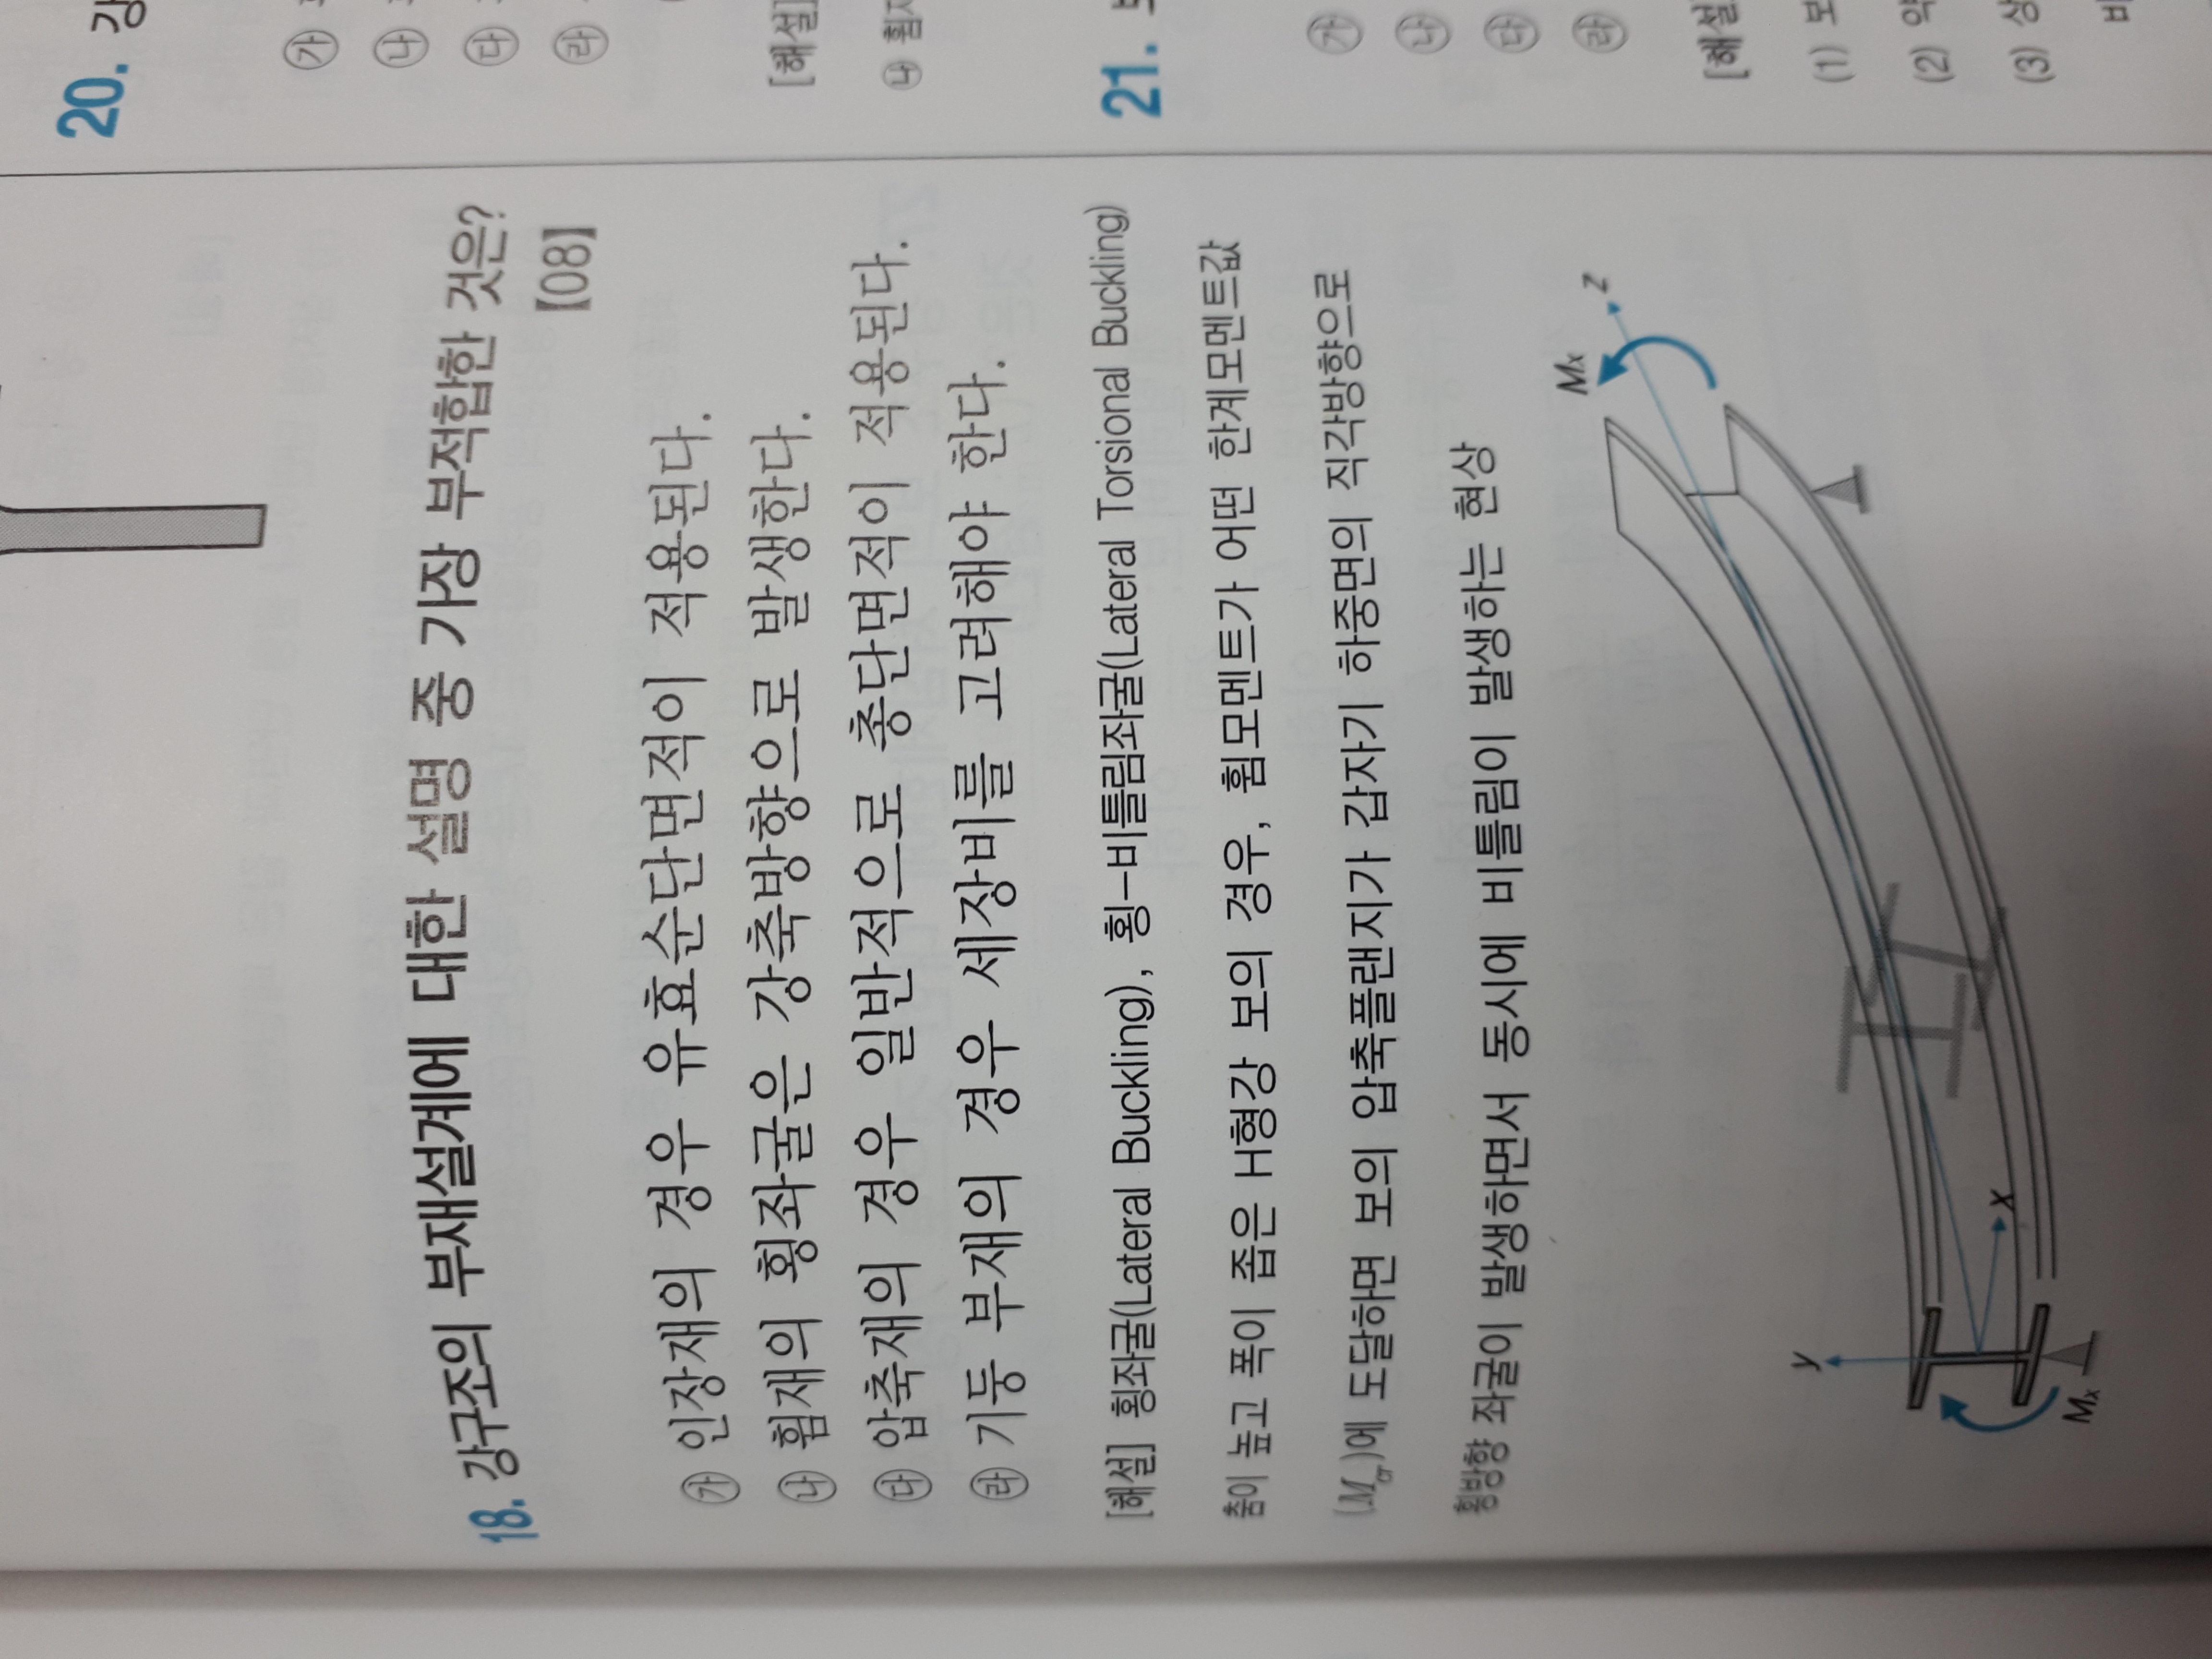 18. 강구조의 부재설계에 대한 설명 중 가장 부적합한 것은?
【08】
㉮ 인장재의 경우 유효순단면적이 적용된다.
㉯ 휨재의 횡좌굴은 강축방향으로 발생한다.
㉰ 압축재의 경우 일반적으로 총단면적이 적용된다.
㉱ 기둥 부재의 경우 세장비를 고려해야 한다.
[해설] 횡좌굴(Lateral Buckling), 횡-비틀림좌굴(Lateral Torsional Buckling)
춤이 높고 폭이 좁은 H형강 보의 경우, 휨모멘트가 어떤 한계모멘트값
(Mcr)에 도달하면 보의 압축플랜지가 갑자기 하중면의 직각방향으로
횡방향 좌굴이 발생하면서 동시에 비틀림이 발생하는 현상
Mx
z
y
x
Mx
20. 강
㉮
㉯
㉰
㉱
[해설]
㉯ 휨
21.
㉮
㉯
㉰
㉱
[해설
(1) 모
(2) 약
(3) 상
비